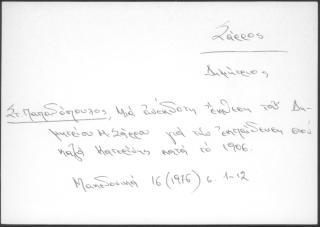 Σάρρος
Δημήτριος
Στ. Παπαδόπουλος, Μιά ἀνέκδοτη ἔκθεση τοῦ Δη-
μητρίου Μ. Σάρρου γιά τήν ἐκπαίδευση στό
καζά Κατερίνης κατά τό 1906.
Μακεδονικά 16 (1976) σ. 1-12